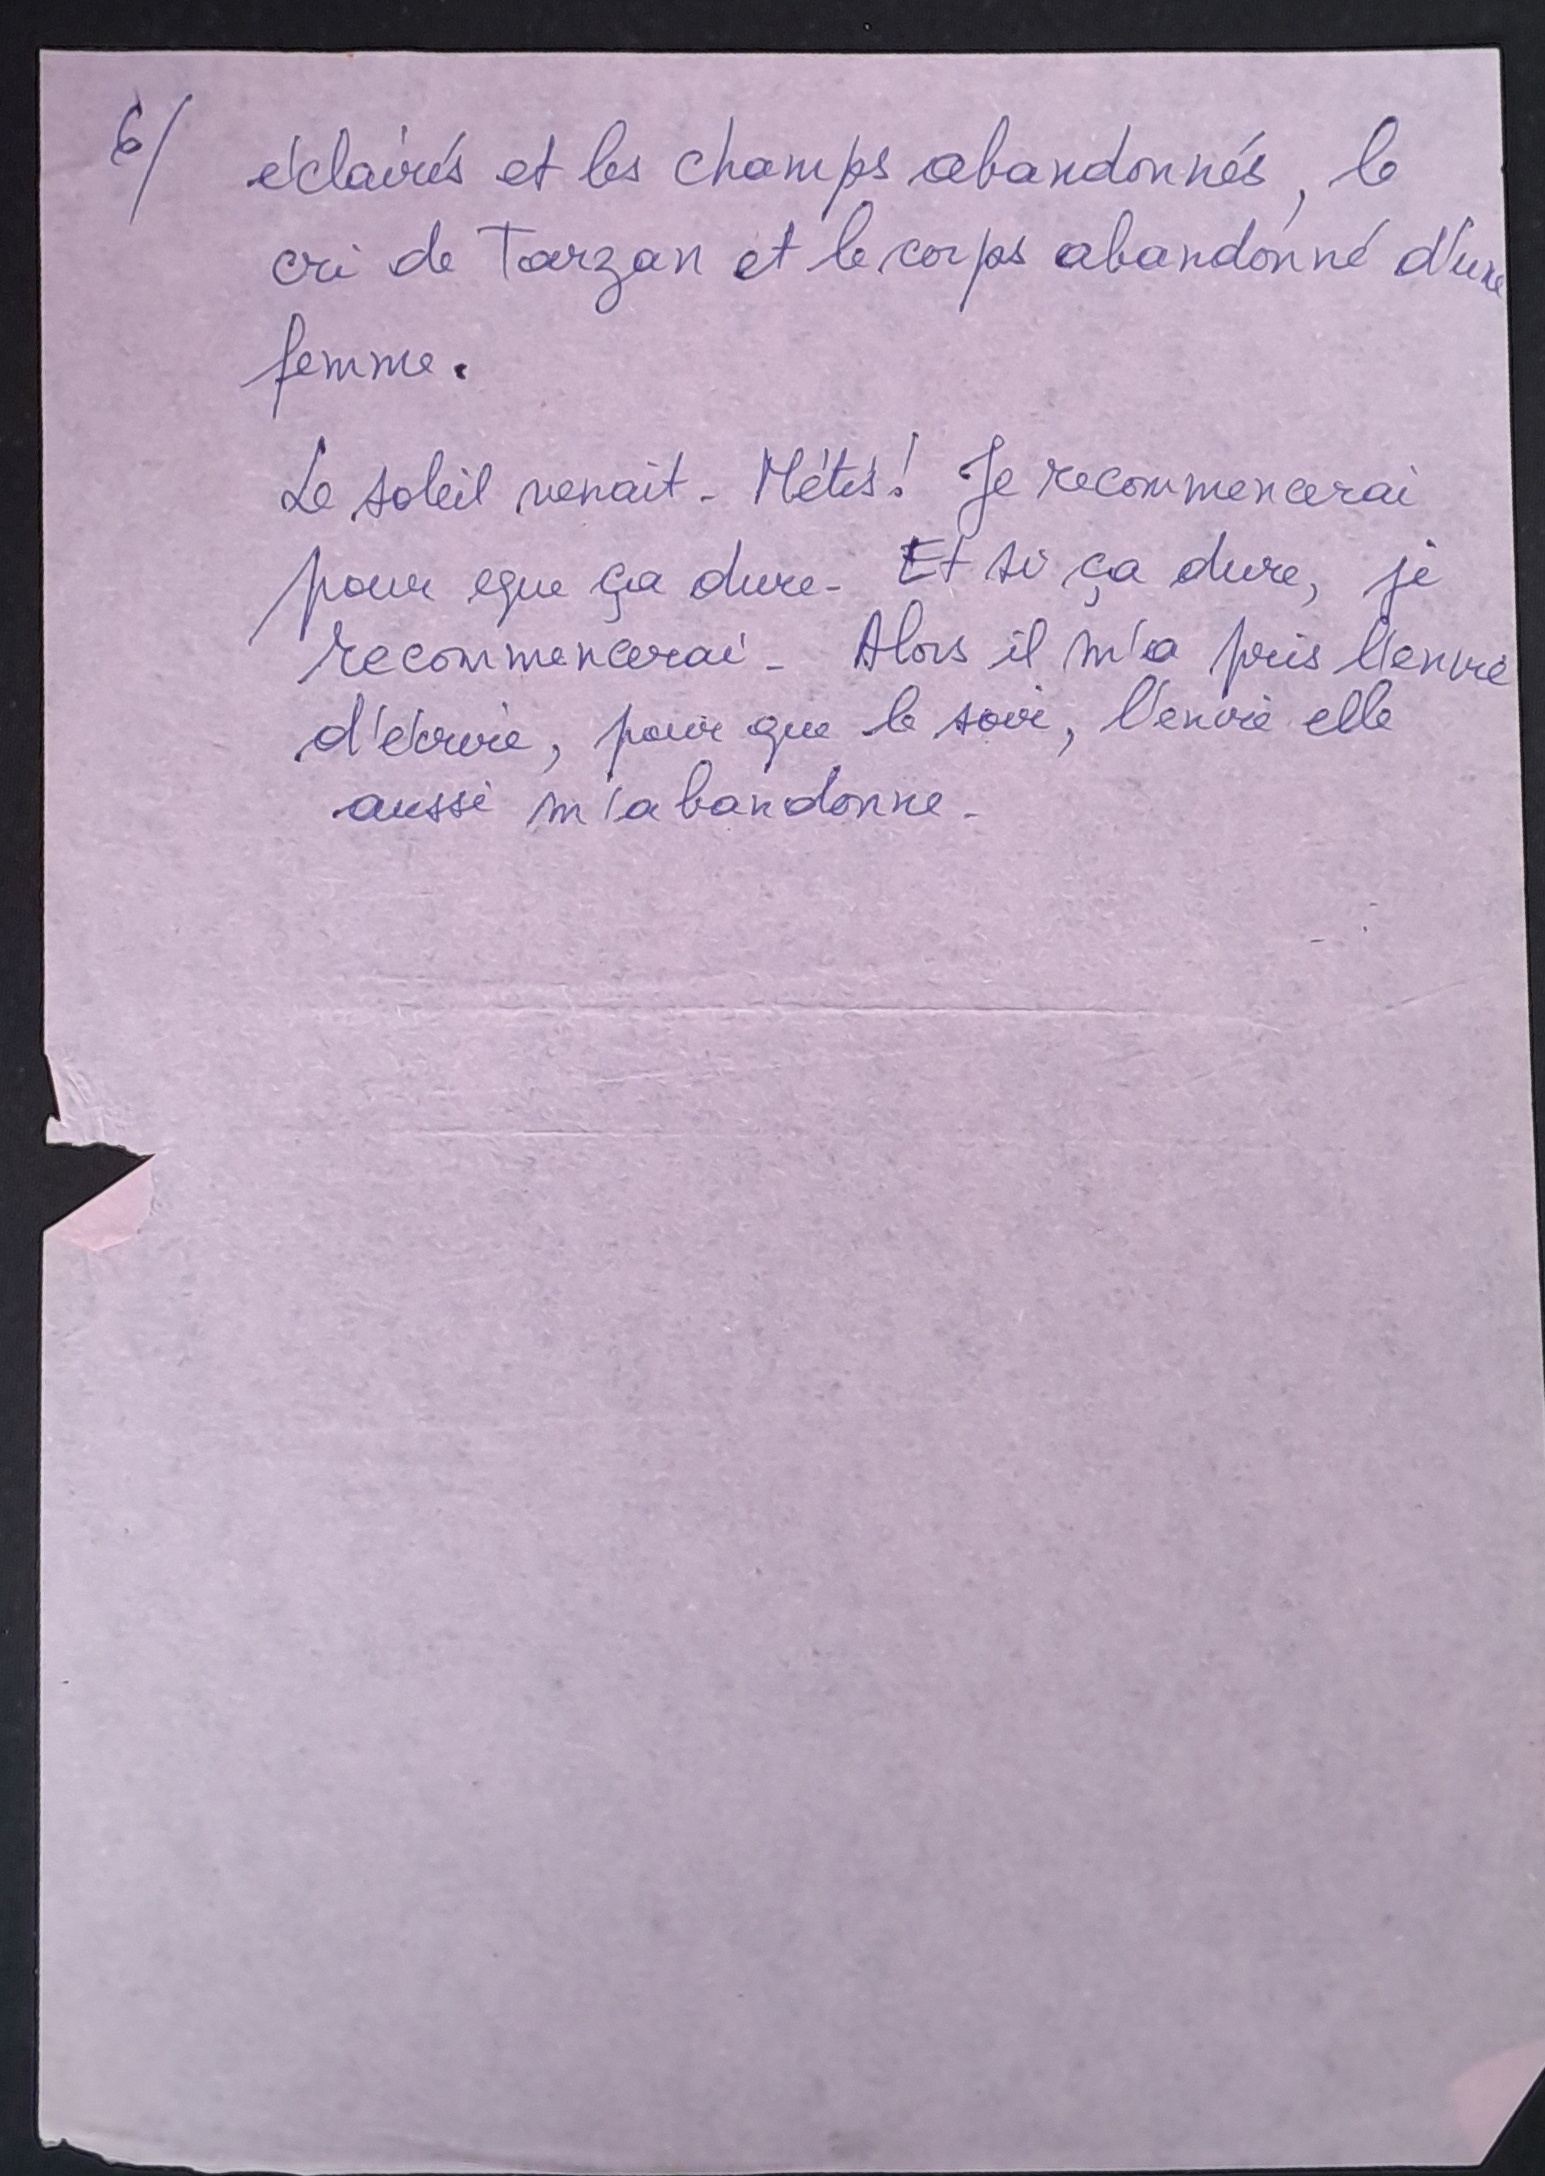 6/ éclairés et les champs abandonnés, le
cri de Tarzan et le corps abandonné d'une
femme.
Le soleil venait - Métis! Je recommencerai
pour que ça dure - Et si ça dure, je
recommencerai - Alors il m'a pris l'envie
d'écrire, pour que le soir, l'envie elle
aussi m'abandonne -